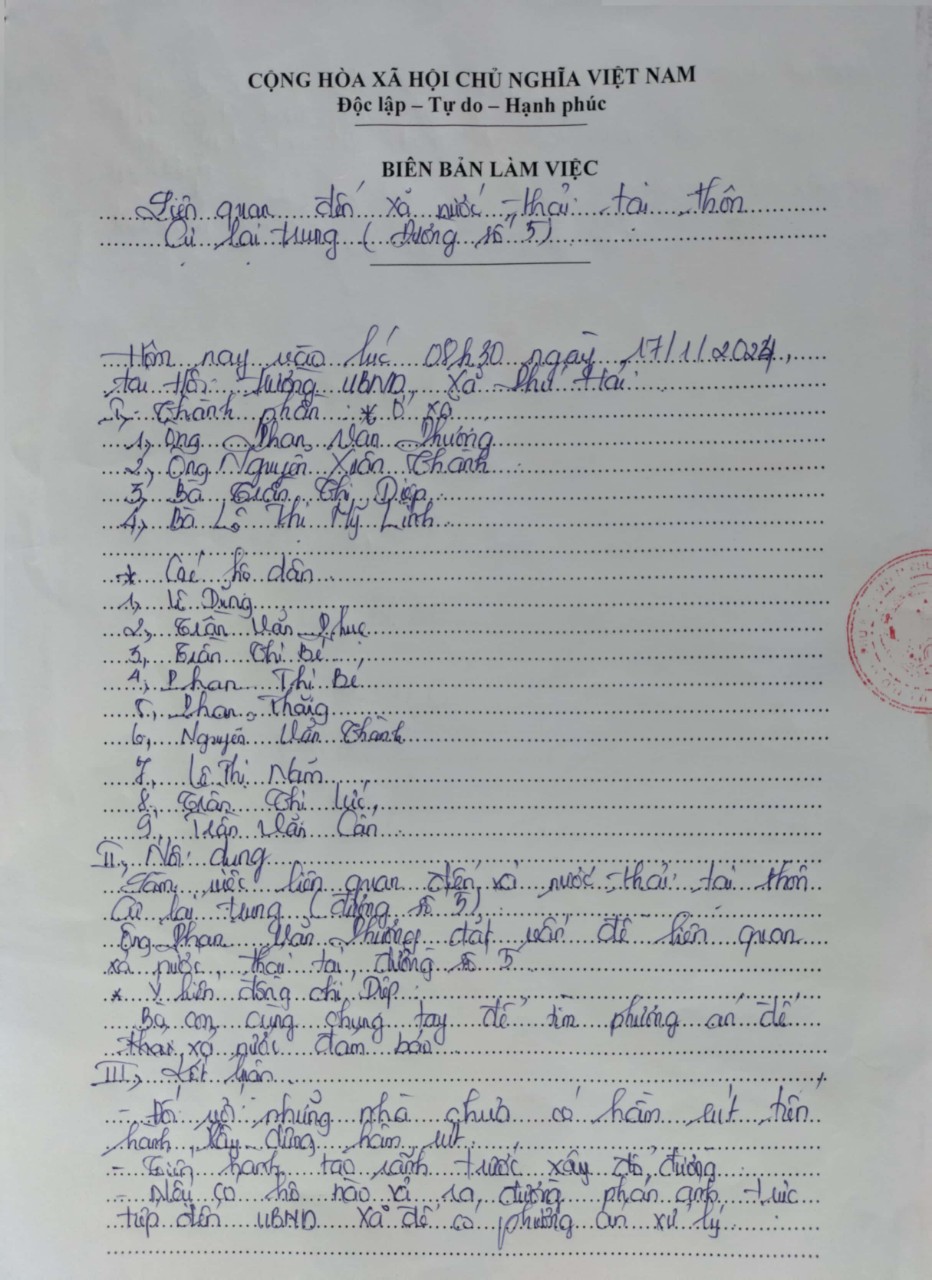 CỘNG HÒA XÃ HỘI CHỦ NGHĨA VIỆT NAM
Độc lập – Tự do – Hạnh phúc
BIÊN BẢN LÀM VIỆC
Liên quan đến xả nước thải tại thôn
Cự lại trung (đường số 5)
Hôm nay vào lúc 08h30 ngày 17/1/2024,
tại Hội trường UBND xã Phú Hải.
I, Thành phần : * Ở xã
1, Ông Phan Văn Phương
2, Ông Nguyễn Xuân Thành
3, Bà Trần Thị Diệp
4, Bà Lê Thị Mỹ Linh
* Các hộ dân
1, Lê Dũng
2, Trần Văn Phục
3, Trần Thị Bé
4, Phan Thị Bé
5, Phan Thăng
6, Nguyễn Văn Thành
7, Lê Thị Nam
8, Trần Thị Lức
9, Trần Văn Cần
II, Nội dung
Làm việc liên quan đến xả nước thải tại thôn
Cự lại trung (đường số 5)
Ông Phan Văn Phương đặt vấn đề liên quan
xả nước thải tại đường số 5
* Ý kiến đồng chí Diệp :
Bà con cùng chung tay để tìm phương án để
xả nước đảm bảo
III, Kết luận
- Đối với những nhà chưa có hầm rút tiến
hành xây dựng hầm rút.
- Tiến hành tạo rãnh trước xây đổ đường
- Nếu có hộ nào xả ra đường phản ánh trực
tiếp đến UBND xã để có phương án xử lý